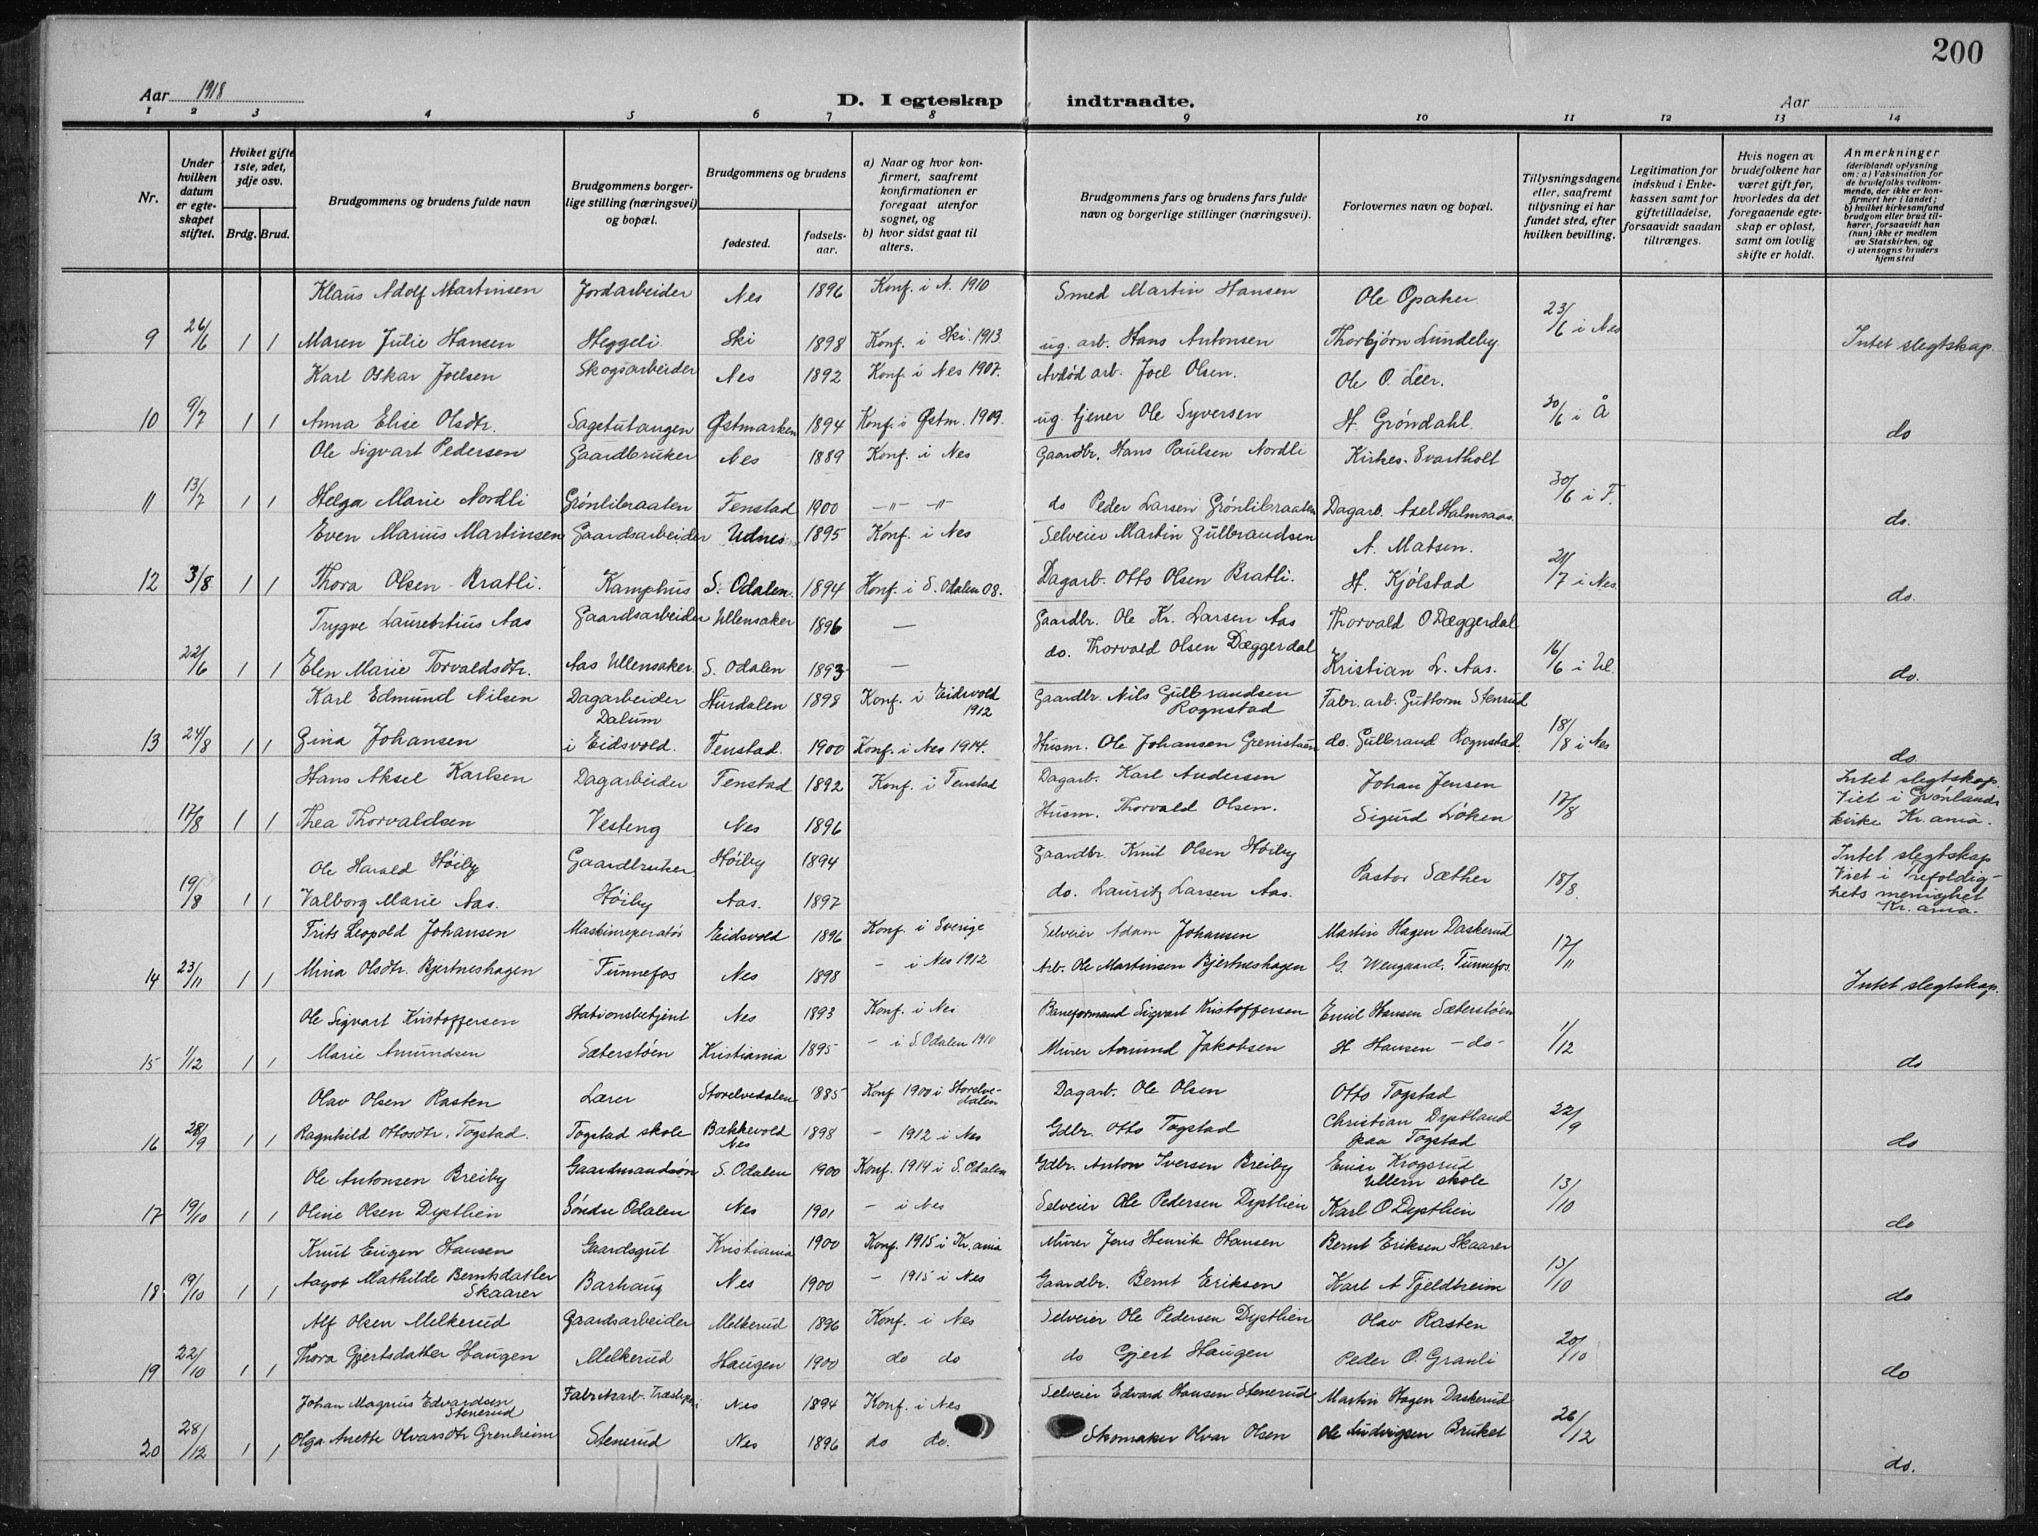 200
Aar 1918
D. I egteskap indtraadte.
Aar
1 2 3 4 5 6 7 8 9 10 11 12 13 14
Nr.
Under hvilken datum er egteskapet stiftet.
Hviket gifte 1ste, 2det, 3dje osv.
Brdg. Brud.
Brudgommens og brudens fulde navn
Brudgommens borgerlige stilling (næringsvei) og bopæl.
Brudgommens og brudens
fødested.
fødselsaar.
a) Naar og hvor konfirmert, saafremt konfirmationen er foregaat utenfor sognet, og
b) hvor sidst gaat til alters.
Brudgommens fars og brudens fars fulde navn og borgerlige stillinger (næringsvei).
Forlovernes navn og bopæl.
Tillysningsdagene eller, saafremt tillysning ei har fundet sted, efter hvilken bevilling.
Legitimation for indskud i Enkekassen samt for giftetilladelse, forsaavidt saadan tiltrænges.
Hvis nogen av brudefolkene har været gift før, hvorledes da det foregaaende egteskap er opløst, samt om lovlig skifte er holdt.
Anmerkninger
(deriblandt oplysning om: a) Vaksination for de brudefolks vedkommende, der ikke er konfirmert her i landet; b) hvilket kirkesamfund brudgom eller brud tilhører, forsaavidt han (hun) ikke er medlem av Statskirken, og c) utensogns bruders hjemsted
Klaus Adolf Martinsen Jordarbeider Nes 1896 Konf. i N. 1910 Smed Martin Hansen Ole Opaker
9 26/6 1 1 Maren Julie Hansen Heggeli Ski 1898 Konf. i Ski 1913 ug. arb. Hans Antonsen Thorbjørn Lundeby 23/6 i Nes Intet slegtskap.
Karl Oskar Joelsen Skogsarbeider Nes 1892 Konf. i Nes 1907. Avdød arb. Joel Olsen. Ole O. Leer.
10 9/7 1 1 Anna Elise Olsdtr. Sagstutangen Østmarken 1894 Konf. i Østm. 1909. ug. tjener Ole Syversen H. Grøndahl. 30/6 i Å do
Ole Sigvart Pedersen Gaardbruker Nes 1889 Konf. i Nes Gaardbr. Hans Paulsen Nordli Kirkes. Svartholt
11 13/7 1 1 Helga Marie Nordli Grønlibraaten Fenstad 1900 —"— —"— do Peder Larsen Grønlibraaten Dagarb. Axel Halmsaas. 30/6 i F. do.
Even Marius Martinsen Gaardsarbeider Udnes 1895 Konf. i Nes Selveier Martin Gulbrandsen A. Matsen.
12 3/8 1 1 Thora Olsen Bratli. Kamphus S. Odalen. 1894 Konf. i S. Odalen 08. Dagarb. Otto Olsen Bratli. H. Kjølstad 21/7 i Nes. do.
Trygve Laurentius Aas Gaardsarbeider Ullensaker 1896 — Gaardbr. Ole Kr. Larsen Aas Thorvald O Dæggerdal
22/6 1 1 Elen Marie Torvaldsdtr. Aas Ullensaker S. Odalen 1893 — do. Thorvald Olsen Dæggerdal Kristian L. Aas. 16/6 i Ul. do.
Karl Edmund Nilsen Dagarbeider Hurdalen 1898 Konf. i Eidsvold 1912 Gaardbr. Nils Gulbrandsen Rognstad Fabr. arb. Guttorm Stenrud
13 24/8 1 1 Gina Johansen Dalum i Eidsvold. Fenstad. 1900 Konf. i Nes 1914. Husm. Ole Johansen Grenistuen do. Gulbrand Rognstad. 18/8 i Nes do.
Hans Aksel Karlsen Dagarbeider Fenstad 1892 Konf. i Fenstad Dagarb. Karl Andersen Johan Jensen Intet slegtskap.
17/8 1 1 Thea Thorvaldsen Vesteng Nes 1896 Husm. Thorvald Olsen. Sigurd Løken 17/8 Viet i Grønlands kirke Kr.ania.
Ole Harald Høiby Gaardbruker Høiby 1894 Gaardbr. Knut Olsen Høiby Pastor Sæther Intet slegtskap
19/8 1 1 Valborg Marie Aas. Høiby Aas. 1897 do. Lauritz Larsen Aas. 18/8. Viet i Trefoldighets menighet Kr.ania.
Frits Leopold Johansen Maskinreparatør Eidsvold 1896 Konf. i Sverige Selveier Adam Johansen Martin Hagen Daskerud
14 23/11 1 1 Mina Olsdtr. Bjertneshagen Funnefos Nes 1898 - i Nes 1912 Arb. Ole Martinsen Bjertneshagen G. Wengaard. Funnefos. 17/11 Intet slegtskap.
Ole Sigvart Kristoffersen Stationsbetjent Nes 1893 Konf. i Nes Baneformand Sigvart Kristoffersen Emil Hansen Sæterstøen
15 1/12 1 1 Marie Amundsen Sæterstøen Kristiania 1895 - i S. Odalen 1910 Murer Amund Jakobsen H Hansen - do - 1/12 do
Olav Olsen Rasten Lærer Storelvedalen 1885 Konf 1900 i Storelvedalen Dagarb. Ole Olsen Otto Togstad
16 28/9 1 1 Ragnhild Ottosdtr. Togstad. Togstad skole Bakkevold Nes 1898 - 1912 i Nes Gdbr. Otto Togstad Christian Dystland paa Togstad 22/9 do
Ole Antonsen Breiby Gaardmandsøn S. Odalen 1900 Konf. 1914 i S. Odalen Gdbr. Anton Iversen Breiby Einar Krogsrud Ullern skole
17 19/10 1 1 Oline Olsen Dystlien Søndre Odalen Nes 1901 - i Nes Selveier Ole Pedersen Dystlien Karl O Dystlien 13/10 do
Knut Eugen Hansen Gaardsgut Kristiania 1900 Konf. 1915 i Kr.ania Murer Jens Henrik Hansen Bernt Eriksen Skaarer
18 19/10 1 1 Aagot Mathilde Berntsdatter Skaarer Barhaug Nes 1900 - 1915 i Nes Gaardbr. Bernt Eriksen Karl A Fjeldheim 13/10 do
Alf Olsen Melkerud Gaardsarbeider Melkerud 1896 Konf. i Nes Selveier Ole Pedersen Dystlien Olav Rasten
19 22/10 1 1 Thora Gjertsdatter Haugen Melkerud Haugen 1900 do do do Gjert Haugen Peder O. Granli 20/10 do
Johan Magnus Edvardsen Stenerud Fabrikarb. Træsliperi Nes 1894 Konf. i Nes Selveier Edvard Hansen Stenerud Martin Hagen Daskerud
20 28/12 1 1 Olga Anette Olvarsdtr Grenheim Stenerud Nes 1896 do do. Skomaker Olvar Olsen Ole Ludvigsen Bruket 26/12 do.